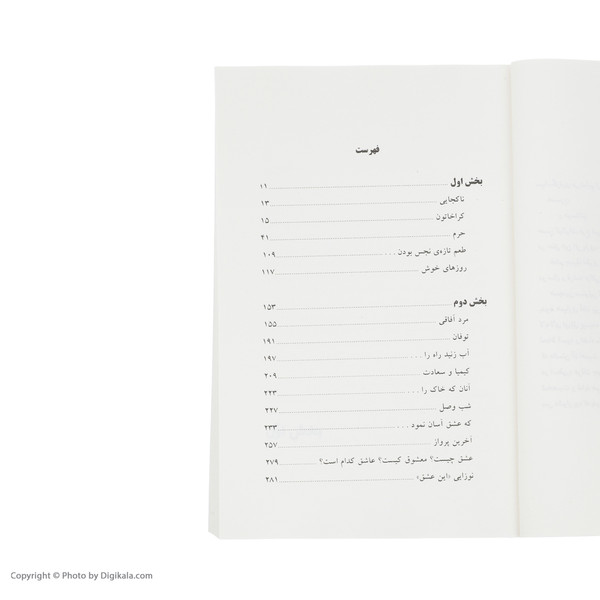 فهرست
بخش اول ۱۱
ناکجایی ۱۳
کراخاتون ۱۵
حرم ۴۱
طعم تازه‌ی نجس بودن... ۱۰۹
روزهای خوش ۱۱۷
بخش دوم ۱۵۳
مرد آفاقی ۱۵۵
توفان ۱۹۱
آب زنید راه را... ۱۹۷
کیمیا و سعادت ۲۰۹
آنان که خاک را... ۲۲۳
شب وصل ۲۲۷
که عشق آسان نمود... ۲۳۳
آخرین پرواز ۲۵۷
عشق چیست؟ معشوق کیست؟ عاشق کدام است؟ ۲۷۹
نوزایی «این عشق» ۲۸۱
Copyright © Photo by Digikala.com